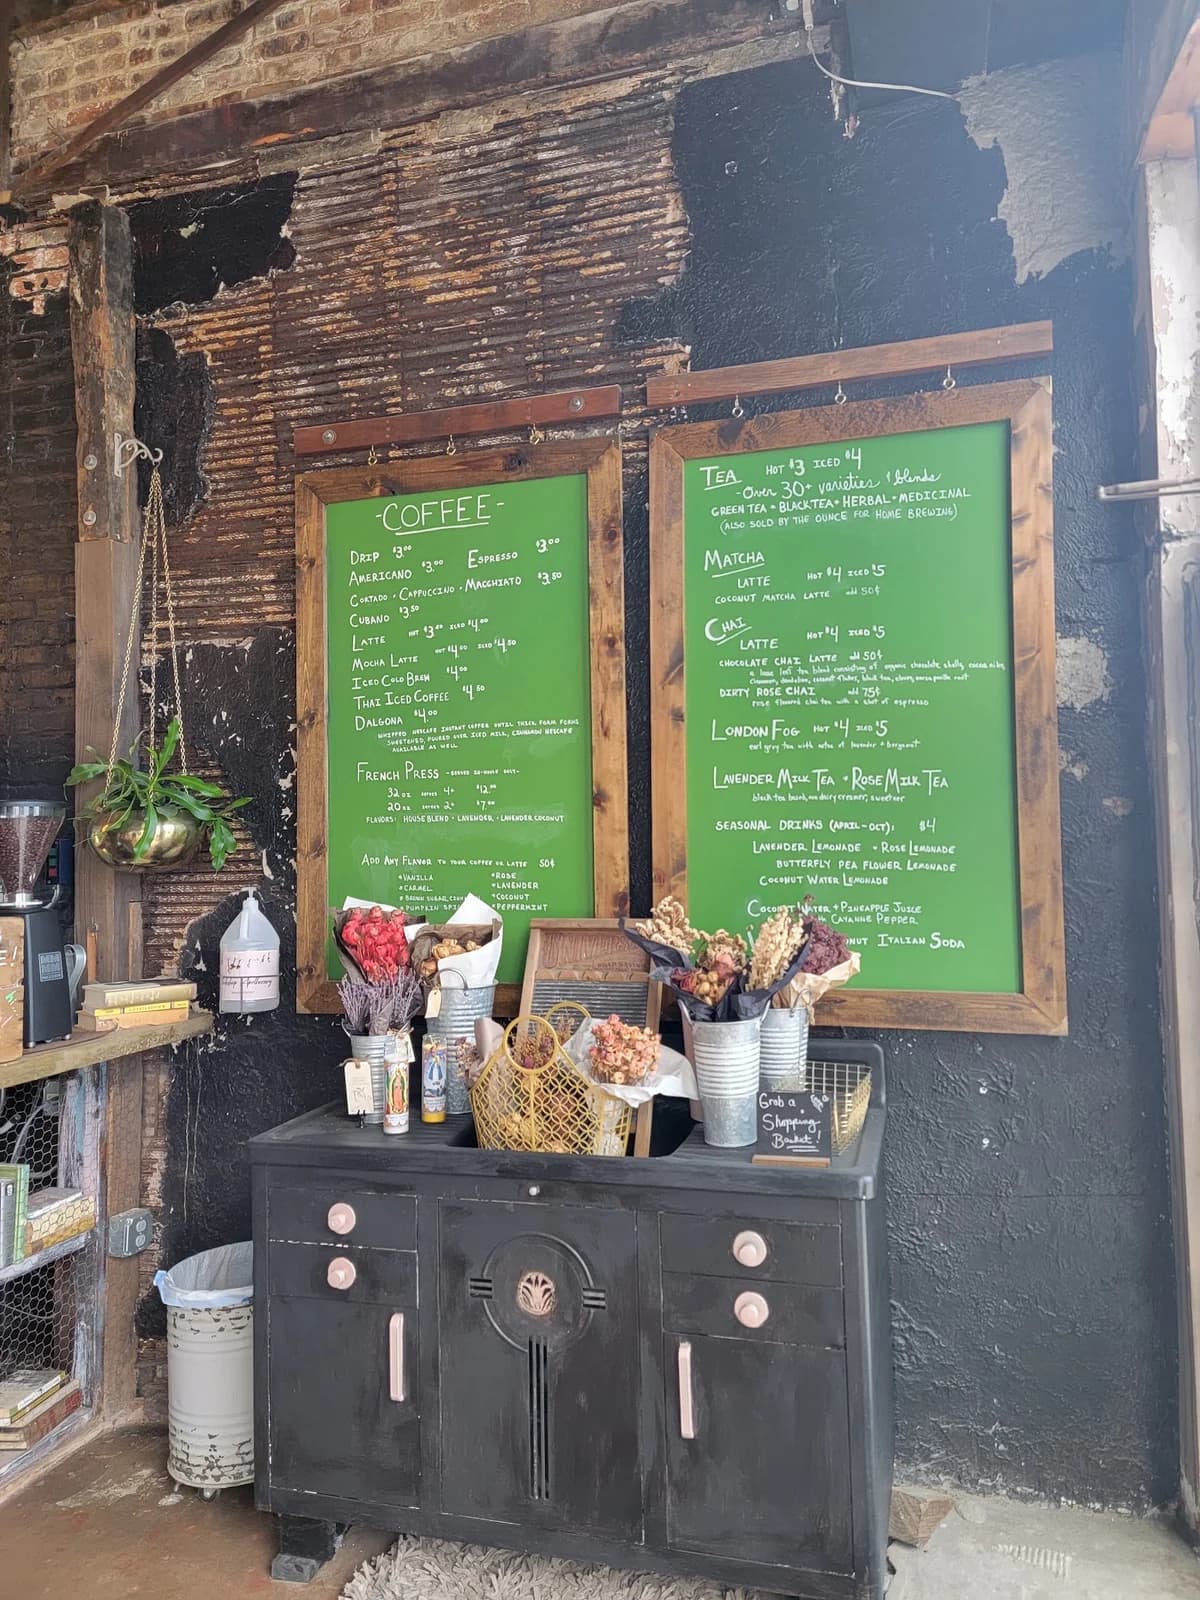 -COFFEE-
DRIP $3.00 ESPRESSO $3.00
AMERICANO $3.00
CORTADO · CAPPUCCINO · MACCHIATO $3.50
CUBANO $3.50
LATTE HOT $3.50 ICED $4.00
MOCHA LATTE HOT $4.00 ICED $4.50
ICED COLD BREW $4.00
THAI ICED COFFEE $4.50
DALGONA $4.00
WHIPPED NESCAFE INSTANT COFFEE UNTIL THICK FOAM FORMS
SWEETENED, POURED OVER ICED MILK, CINNAMON NESCAFE
AVAILABLE AS WELL
FRENCH PRESS - SERVED IN-HOUSE ONLY-
32 oz serves 4+ $12.00
20 oz serves 2+ $7.00
FLAVORS: HOUSE BLEND · LAVENDER · LAVENDER COCONUT
ADD ANY FLAVOR TO YOUR COFFEE OR LATTE 50¢
•VANILLA •ROSE
•CARMEL •LAVENDER
•BROWN SUGAR •COCONUT
•PUMPKIN SPICE •PEPPERMINT
TEA HOT $3 ICED $4
-Over 30+ varieties & blends
GREEN TEA • BLACK TEA • HERBAL • MEDICINAL
(ALSO SOLD BY THE OUNCE FOR HOME BREWING)
MATCHA
LATTE HOT $4 ICED $5
COCONUT MATCHA LATTE add 50¢
CHAI
LATTE HOT $4 ICED $5
CHOCOLATE CHAI LATTE add 50¢
a loose leaf tea blend consisting of organic chocolate, shells, cacao nibs,
cinnamon, dandelion, coconut flakes, black tea, cloves, sarsaparilla root
DIRTY ROSE CHAI add 75¢
rose flavored chai tea with a shot of espresso
LONDON FOG HOT $4 ICED $5
earl grey tea with notes of lavender + bergamot
LAVENDER MILK TEA • ROSE MILK TEA
black tea based, non dairy creamer, sweetener
SEASONAL DRINKS (APRIL-OCT): $4
LAVENDER LEMONADE • ROSE LEMONADE
BUTTERFLY PEA FLOWER LEMONADE
COCONUT WATER LEMONADE
COCONUT WATER + PINEAPPLE JUICE
CAYANNE PEPPER
ITALIAN SODA
Grab a
Shopping
Basket!